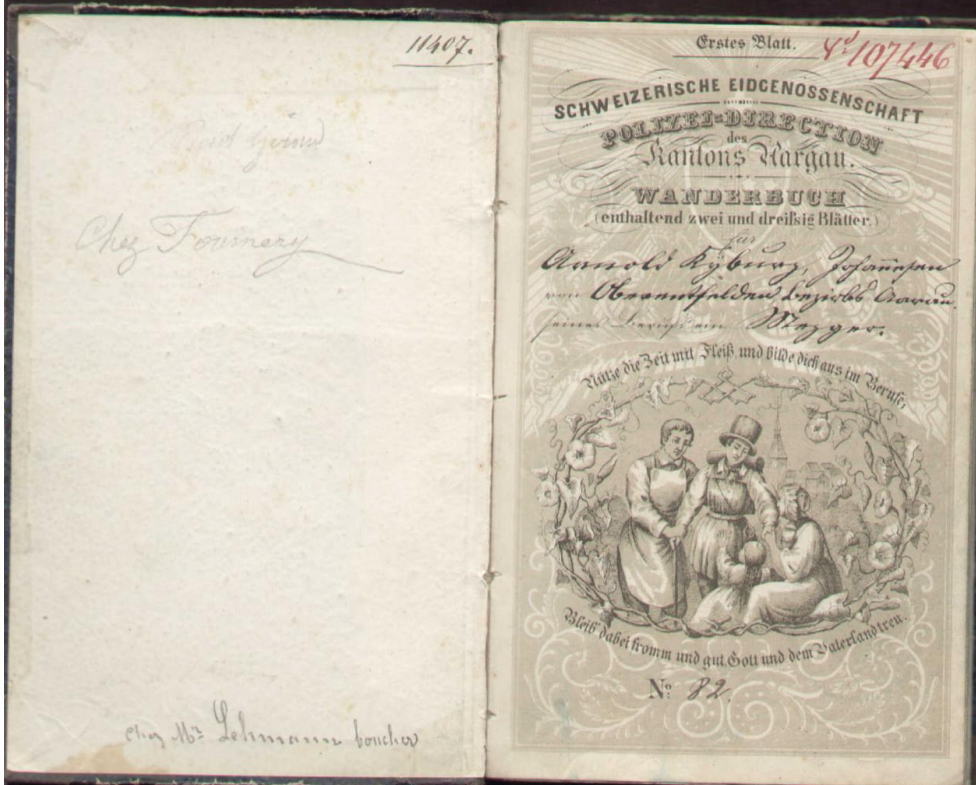 11407.
Chez Fournery
chez Mr. Lehmann boucher
Erstes Blatt.
No 107446
SCHWEIZERISCHE EIDGENOSSENSCHAFT
POLIZEI=DIRECTION
des
Kantons Aargau.
WANDERBUCH
(enthaltend zwei und dreißig Blätter.)
für
Arnold Kyburz, Johannesen
von Oberentfelden Bezirks Aarau.
seines Berufs ein Mezger.
Nütze die Zeit mit Fleiß und bilde dich aus im Berufe,
Bleib dabei fromm und gut, Gott und dem Vaterland treu.
No. 82.